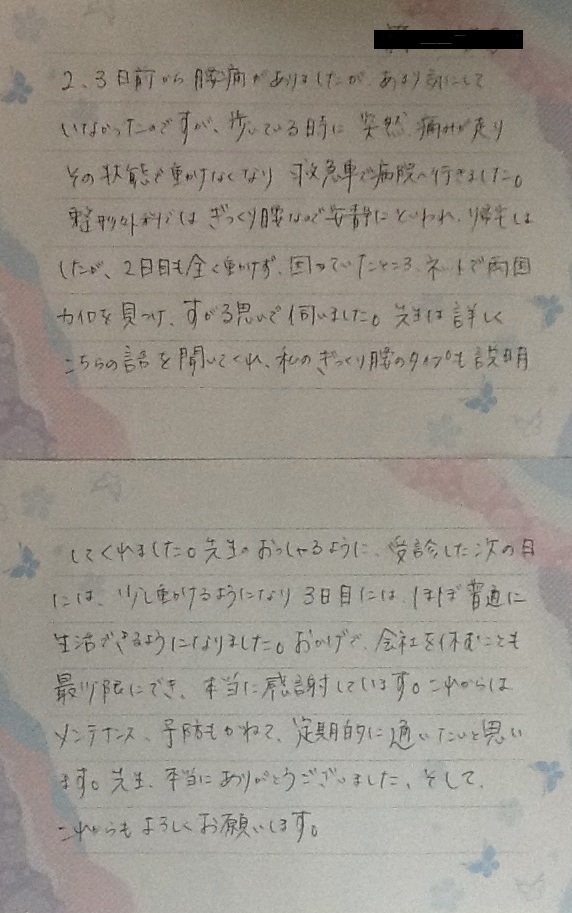 2、3日前から腰痛がありましたが、あまり気にして
いなかったのですが、歩いている時に突然痛みが走り
その状態で動けなくなり救急車で病院へ行きました。
整形外科ではぎっくり腰なので安静にといわれ、帰宅しま
したが、2日目も全く動けず、困っていたところ、ネットで両国
カイロを見つけ、すがる思いで伺いました。先生は詳しく
こちらの話を聞いてくれ、私のぎっくり腰のタイプも説明
してくれました。先生のおっしゃるように、受診した次の日
には、少し動けるようになり3日目には、ほぼ普通に
生活できるようになりました。おかげで、会社を休むことも
最小限にでき、本当に感謝しています。これからは
メンテナンス、予防もかねて、定期的に通いたいと思い
ます。先生、本当にありがとうございました。そして、
これからもよろしくお願いします。